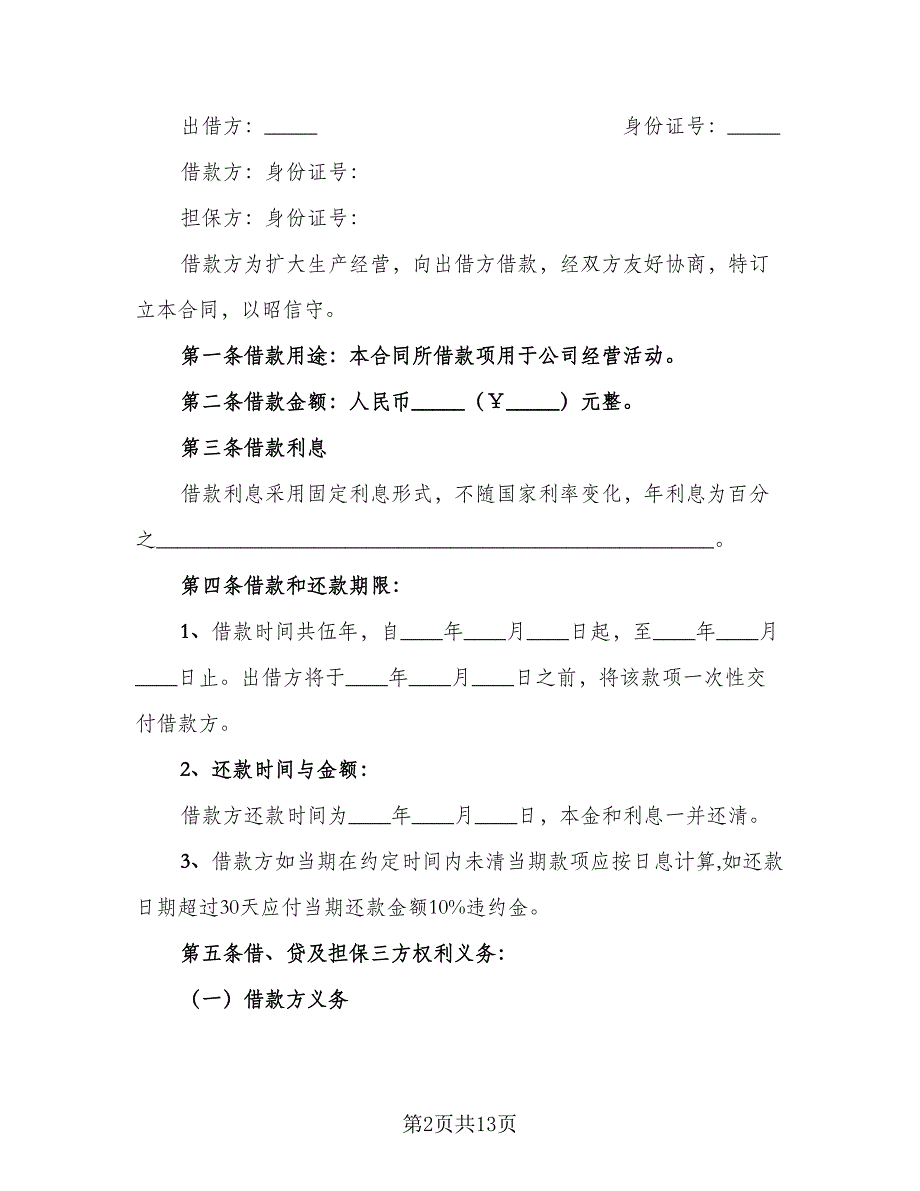 出借方：_____ 身份证号：_____
借款方：身份证号：
担保方：身份证号：
借款方为扩大生产经营，向出借方借款，经双方友好协商，特订
立本合同，以昭信守。
第一条借款用途：本合同所借款项用于公司经营活动。
第二条借款金额：人民币_____（￥_____）元整。
第三条借款利息
借款利息采用固定利息形式，不随国家利率变化，年利息为百分
之_____________________________________________________。
第四条借款和还款期限：
1、借款时间共伍年，自____年____月____日起，至____年____月
____日止。出借方将于____年____月____日之前，将该款项一次性交
付借款方。
2、还款时间与金额：
借款方还款时间为____年____月____日，本金和利息一并还清。
3、借款方如当期在约定时间内未清当期款项应按日息计算,如还款
日期超过30天应付当期还款金额10%违约金。
第五条借、贷及担保三方权利义务：
（一）借款方义务
第2页共13页